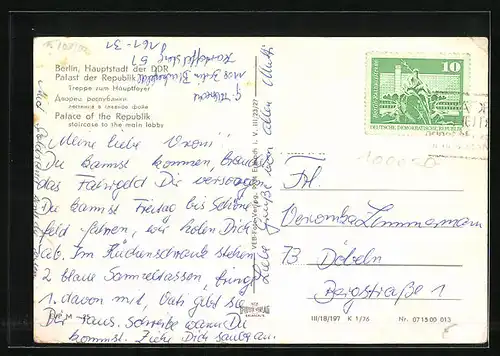 Berlin, Hauptstadt der DDR
Palast der Republik
Treppe zum Hauptfoyer
Дворец республики
лестница в главное фойе
Palace of the Republik
staircase to the main lobby
Meine liebe Vroni!
Du kannst kommen, brauchst
das Fahrgeld Dir versorgen.
Du kannst Freitag bis Schöne-
feld fahren, wir holen Dich
ab. Im Küchenschrank stehen
2 blaue Sammeltassen, bring
1. davon mit, Vati gibt sie
Dir raus. Schreibe wann Du
kommst. Ziehe Dich sauber an.
Liebe Grüße von allen Mutti
1161-31
VEB Foto-Verlag III/23/27
10
DEUTSCHE DEMOKRATISCHE REPUBLIK
Frl.
Veronika Zimmermann
73 Döbeln
Bergstraße 1
III/18/197 K 1/76 Nr. 071500 013